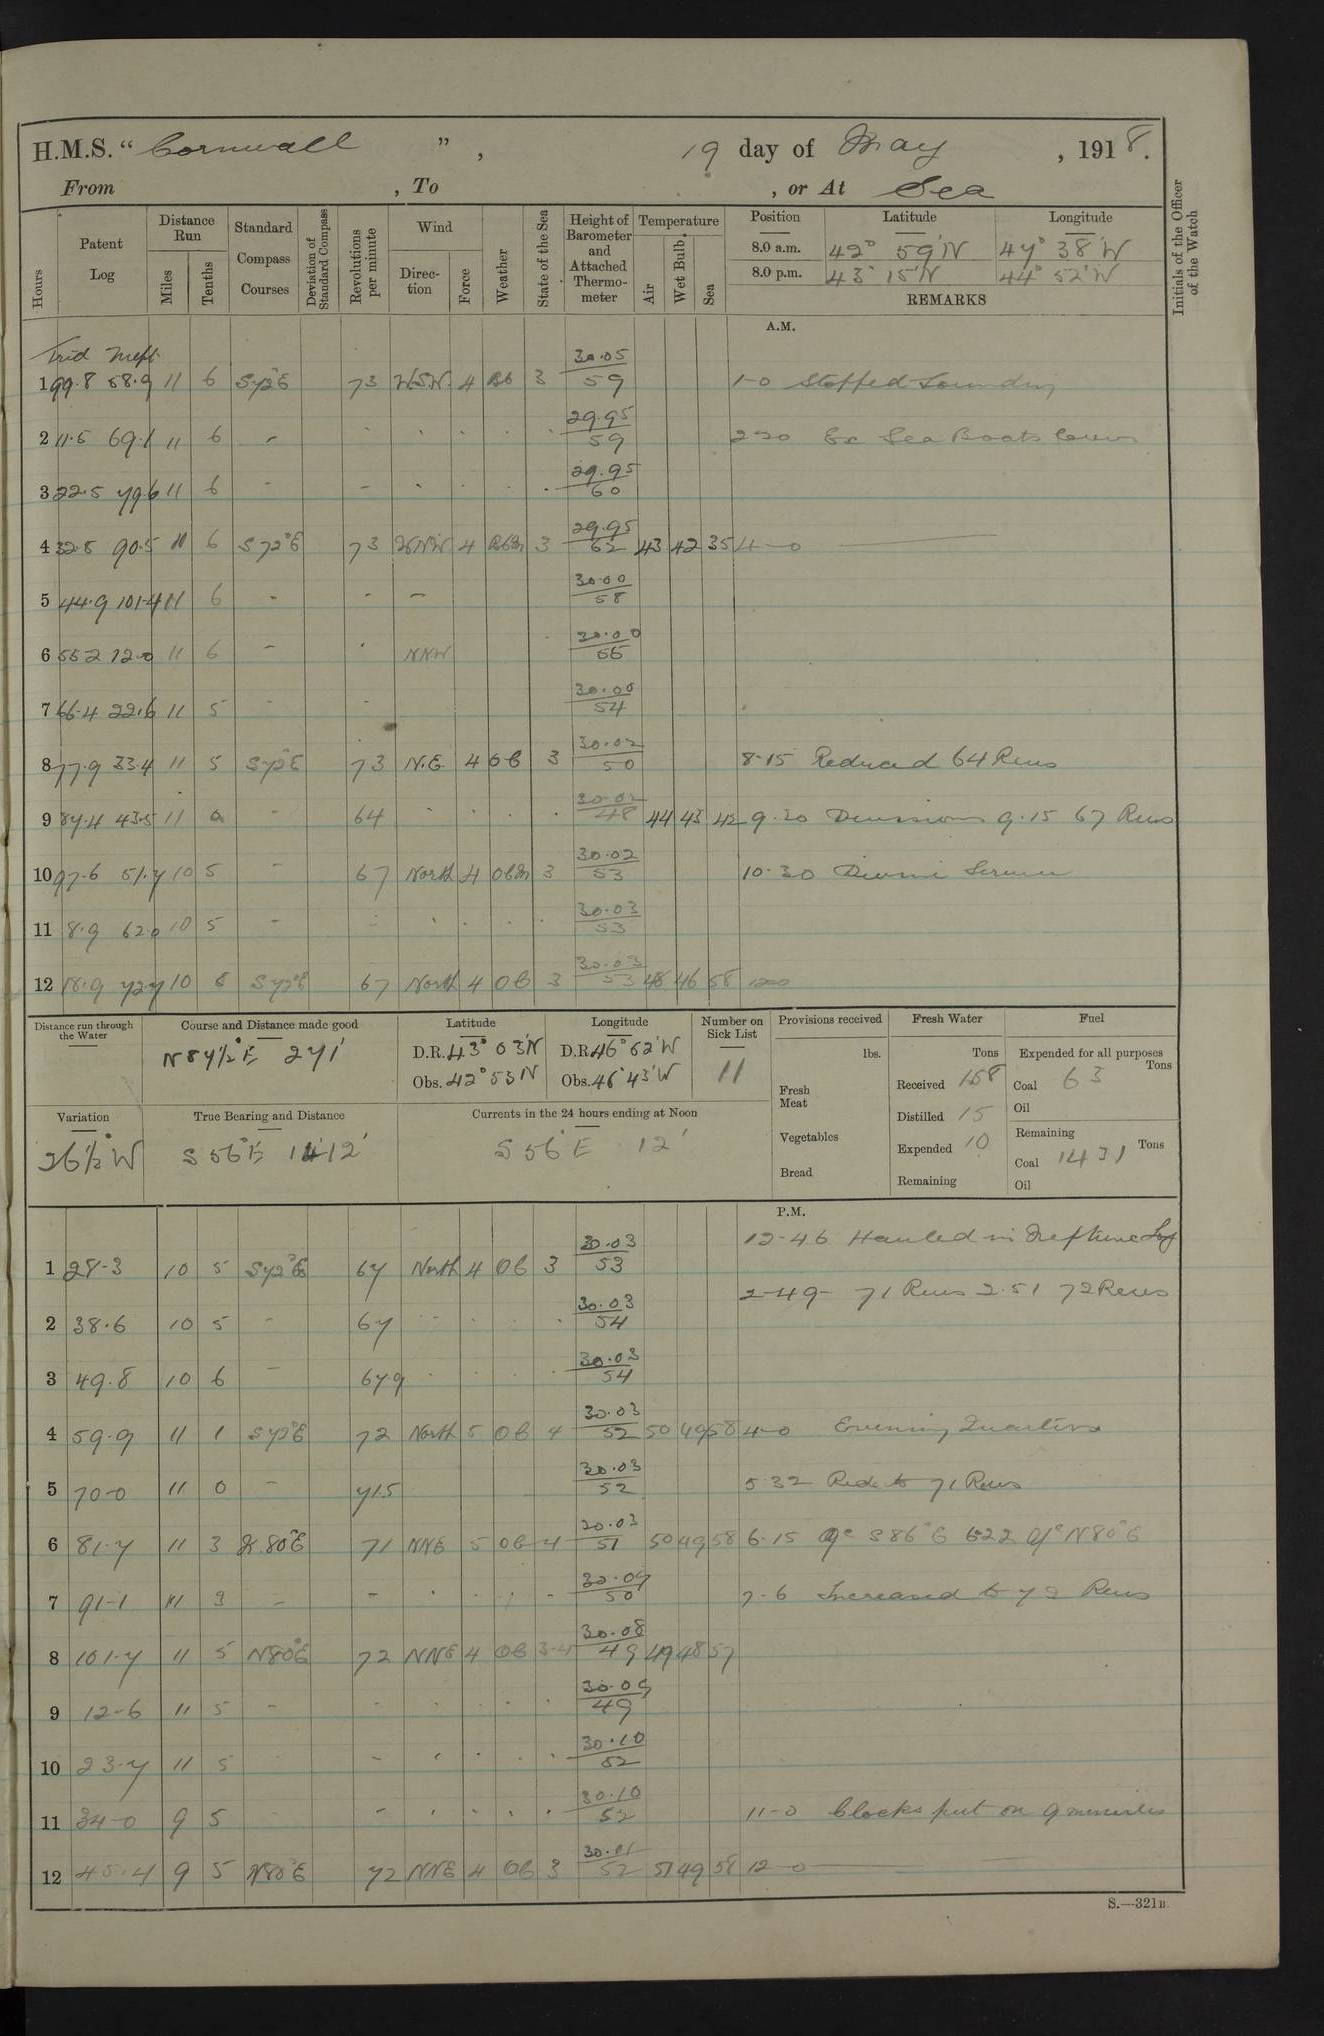 H.M.S. “ Cornwall ” , 19 day of May , 1918.
From , To , or At Sea
Hours Patent Log Distance Run Miles Tenths Standard Compass Courses Deviation of Standard Compass Revolutions per minute Wind Direction Force Weather State of the Sea Height of Barometer and Attached Thermometer Temperature Air Wet Bulb Sea Position Latitude Longitude Initials of the Officer of the Watch
8.0 a.m. 42° 59' N 47° 38' W
8.0 p.m. 43° 15' N 44° 52' W
REMARKS
A.M.
Trid Nept
1 99.8 58.9 11 6 S72°E 73 WSW 4 3 30.05 59 1-0 Stopped Sounding
2 11.5 69.1 11 6 - 29.95 59 Sea Boats
3 22.5 79.6 11 6 - - 29.95 60
4 32.8 90.5 11 6 S72°E 73 WNW 4 3 29.95 62 43 42 35 4-0
5 44.9 101.4 11 6 - - - 30.00 58
6 55.2 12.0 11 6 - NNW 30.00 55
7 66.4 22.6 11 5 - - 30.00 54
8 77.9 33.4 11 5 S72°E 73 N.E. 4 OB 3 30.02 50 8-15 Reduced 64 Revs
9 87.4 43.5 11 - 64 30.02 48 44 43 42 9.20 Divisions 9.15 67 Revs
10 97.6 51.7 10 5 - 67 North 4 OBM 3 30.02 53 10-30 Divine Service
11 8.9 62.0 10 5 - 30.03 53
12 18.9 72.7 10 S72°E 67 North 4 OB 3 30.03 53 48 46 58 1200
Distance run through the Water Course and Distance made good N87½°E 271' Latitude D.R. 43° 03' N Obs. 42° 53' N Longitude D.R. 46° 62' W Obs. 46° 43' W Number on Sick List 11
Provisions received lbs. Fresh Meat Vegetables Bread
Fresh Water Tons Received 158 Distilled 15 Expended 10 Remaining
Fuel Expended for all purposes Tons Coal 63 Oil Remaining Coal 1431 Tons Oil
Variation 26½ W True Bearing and Distance S 56°E 1412' Currents in the 24 hours ending at Noon S 56°E 12'
P.M.
12-46 Hauled in Neptune Log
1 28-3 10 5 S72°E 67 North 4 OB 3 30.03 53
2-49- 71 Revs 2.51 72 Revs
2 38.6 10 5 - 67 30.03 54
3 49.8 10 6 - 679 30.03 54
4 59.9 11 1 S72°E 72 North 5 OB 4 30.03 52 50 49 58 4-0 Evening Quarters
5 70-0 11 0 - 71.5 30.03 52 5.32 Red. to 71 Revs
6 81.7 11 3 N.80°E 71 NNE 5 OB 4 30.03 51 50 49 58 6-15 a/c S86°E 622 a/c N80°E
7 91-1 11 3 - - 30.09 50 7-6 Increased to 72 Revs
8 101.7 11 5 N80°E 72 NNE 4 OB 3-4 30.08 49 49 48 57
9 12-6 11 5 - 30.09 49
10 23.7 11 5 - 30.10 52
11 34-0 9 5 - 30.10 52 11-0 Clocks put on 9 minutes
12 45.4 9 5 N80°E 72 NNE 4 OB 3 30.11 52 51 49 58 12-0
S.—321B.